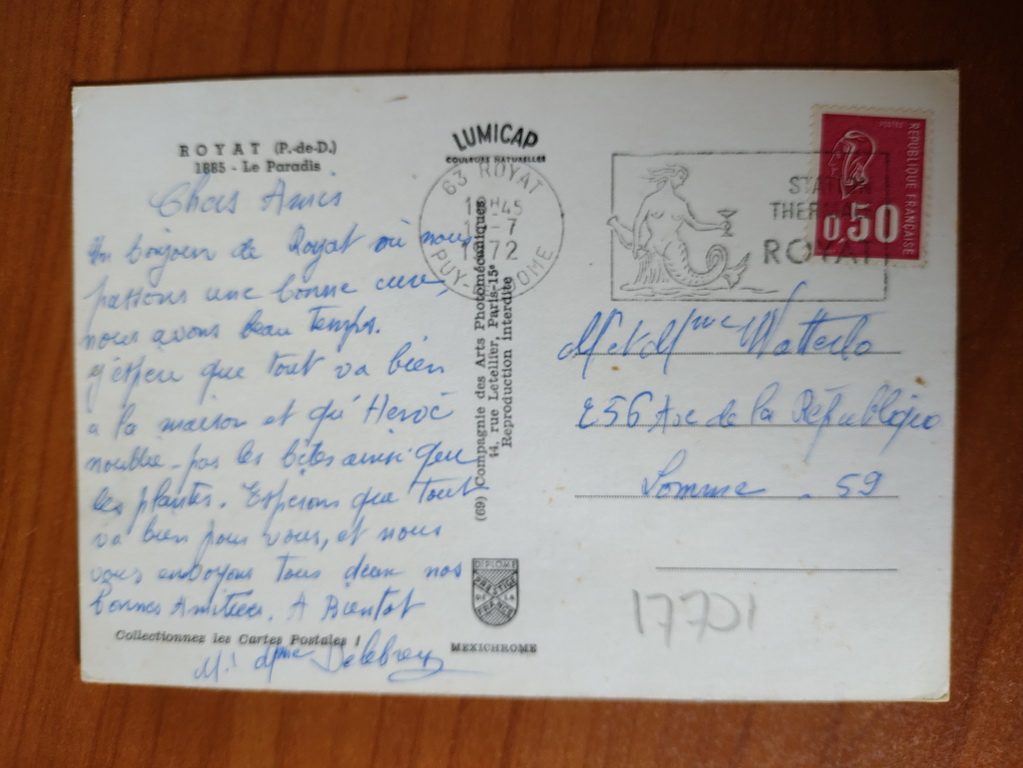 ROYAT (P.-de-D.)
1885 - Le Paradis
Chers Amis
Un bonjour de Royat où nous
passons une bonne cure,
nous avons beau temps.
J'espère que tout va bien
a la maison et qu'Hervé
noublie pas les bêtes ainsi que
les plantes. Espérons que tout
va bien pour vous, et nous
vous envoyons tous deux nos
bonnes Amitiées. A Bientot
Collectionnez les Cartes Postales !
Mr Mme
LUMICAP
COULEURS NATURELLES
63 ROYAT
H45
-7
1972
PUY-DE-DOME
(69) Compagnie des Arts Photomécaniques
44, rue Letellier, Paris-15e
Reproduction interdite
DIPLOME
PRESTIGE
DE LA
FRANCE
MEXICHROME
STATION
THERMALE
ROYAT
POSTES
REPUBLIQUE FRANÇAISE
0,50
Mr et Mme
256 Ave de la République
59
17701